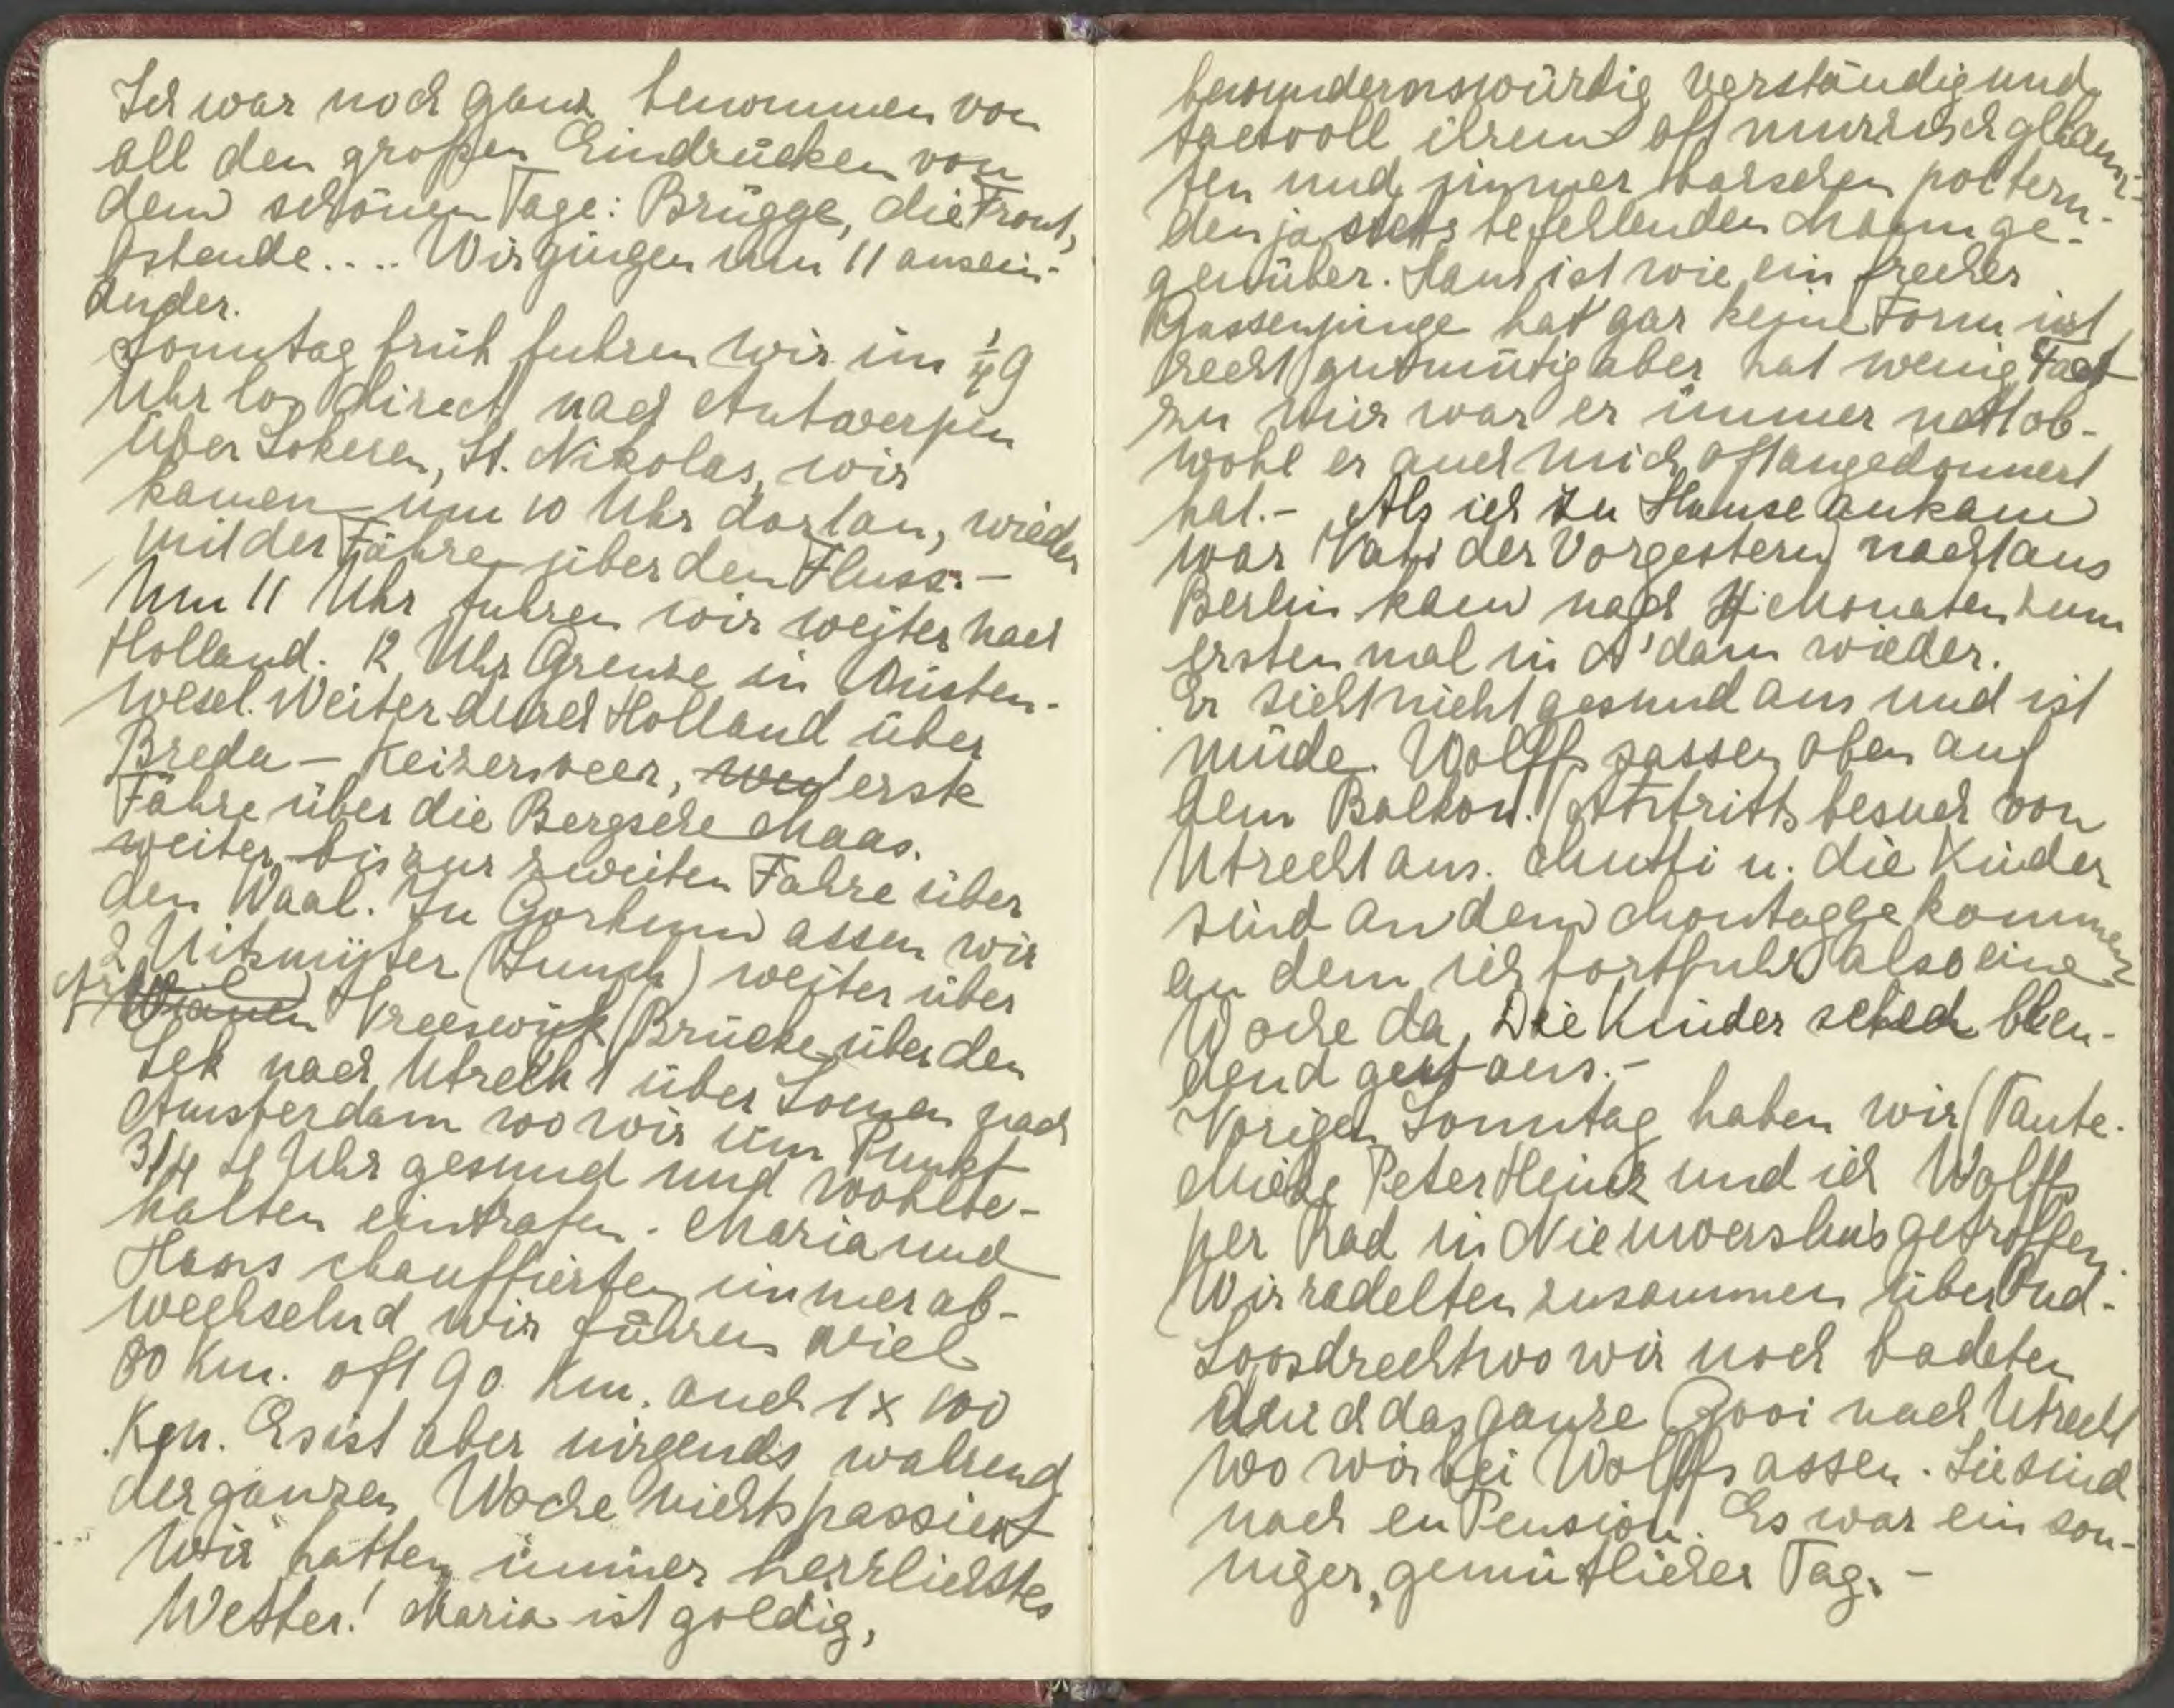 Ich war noch ganz benommen von
all den großen Eindrücken von
dem schönen Tage: Brügge, die Front,
Ostende.... Wir gingen um 11 ausein-
ander.
Sonntag früh fuhren wir um ¼9
Uhr los direct nach Antwerpen
über Lokeren, St. Nikolas, wir
kamen um 10 Uhr dort an, wieder
mit der Fähre über den Fluss. –
Um 11 Uhr fuhren wir weiter nach
Holland. 12 Uhr Grenze in Wüsten-
wesel. Weiter durch Holland über
Breda – Keizersveer, erste
Fähre über die Bergsche Maas.
weiter bis zur zweiten Fähre über
den Waal. In Gorkum assen wir
2 Uitsmijter (Lunch) weiter über
Vianen Vreeswijk (Brücke über den
Lek nach Utrecht über Loenen nach
Amsterdam wo wir um Punkt
3/4 4 Uhr gesund und wohlbe-
halten eintrafen. Maria und
Hans chauffierten immer ab-
wechselnd wir fuhren viel
80 Km. oft 90 Km. auch 1 x 100
Km. Es ist aber nirgends während
der ganzen Woche nichts passiert
Wir hatten immer herrlichstes
Wetter! Maria ist goldig,
bewundernswürdig verständig und
tactvoll ihrem oft mürrisch gelaun-
ten und immer barschen poltern-
den ja stets befehlenden Mann ge-
genüber. Hans ist wie ein frecher
Gassenjunge hat gar keine Form ist
recht gutmütig aber hat wenig Tact
zu mir war er immer nett ob-
wohl er auch mich oft angedonnert
hat. – Als ich zu Hause ankam
war Vati der Vorgestern nacht aus
Berlin kam nach 4 Monaten zum
ersten mal in A'dam wieder.
Er sieht nicht gesund aus und ist
müde. Wolffs sassen oben auf
dem Balkon. (Antrittsbesuch von
Utrecht aus. Mutti u. die Kinder
sind an dem Montag gekommen
an dem ich fortfuhr also eine
Woche da, Die Kinder sehen blen-
dend gut aus. –
Vorigen Sonntag haben wir (Tante
Mieke Peter Heinz und ich Wolffs
per Rad in Nieuwersluis getroffen.
Wir radelten zusammen über Oud-
Loosdrecht wo wir noch badeten
durch das ganze Gooi nach Utrecht
wo wir bei Wolffs assen. Sie sind
noch en Pension. Es war ein son-
niger, gemütlicher Tag. –